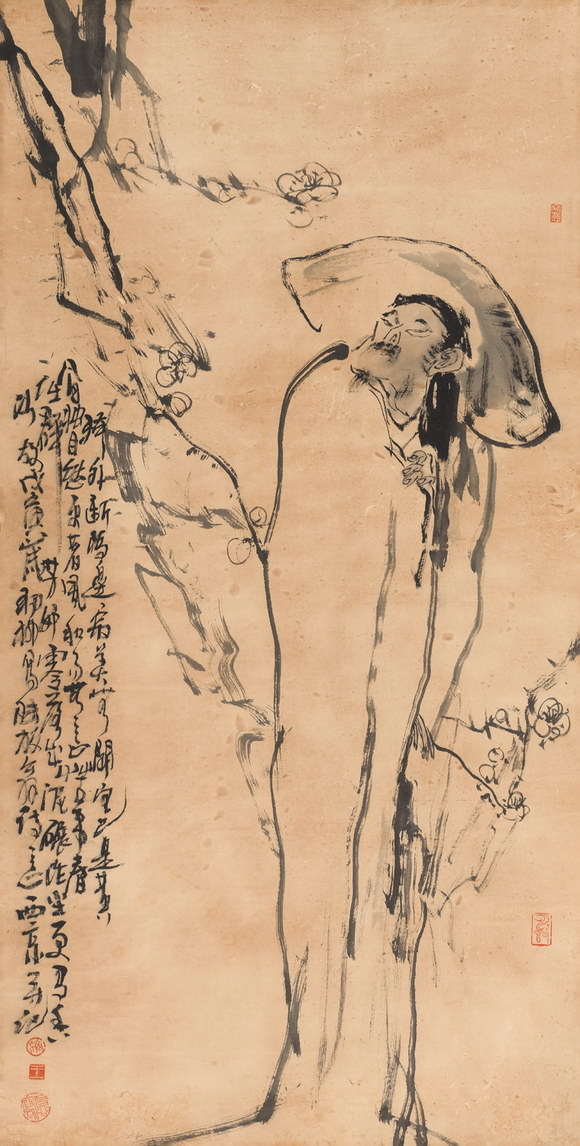 驛外斷橋邊寂寞開無主已是黃
昏獨自愁更着風和雨無意苦爭春
一任群芳妒零落成泥碾作塵有香
如故戊寅歲初寫陸放翁詩意西京并記